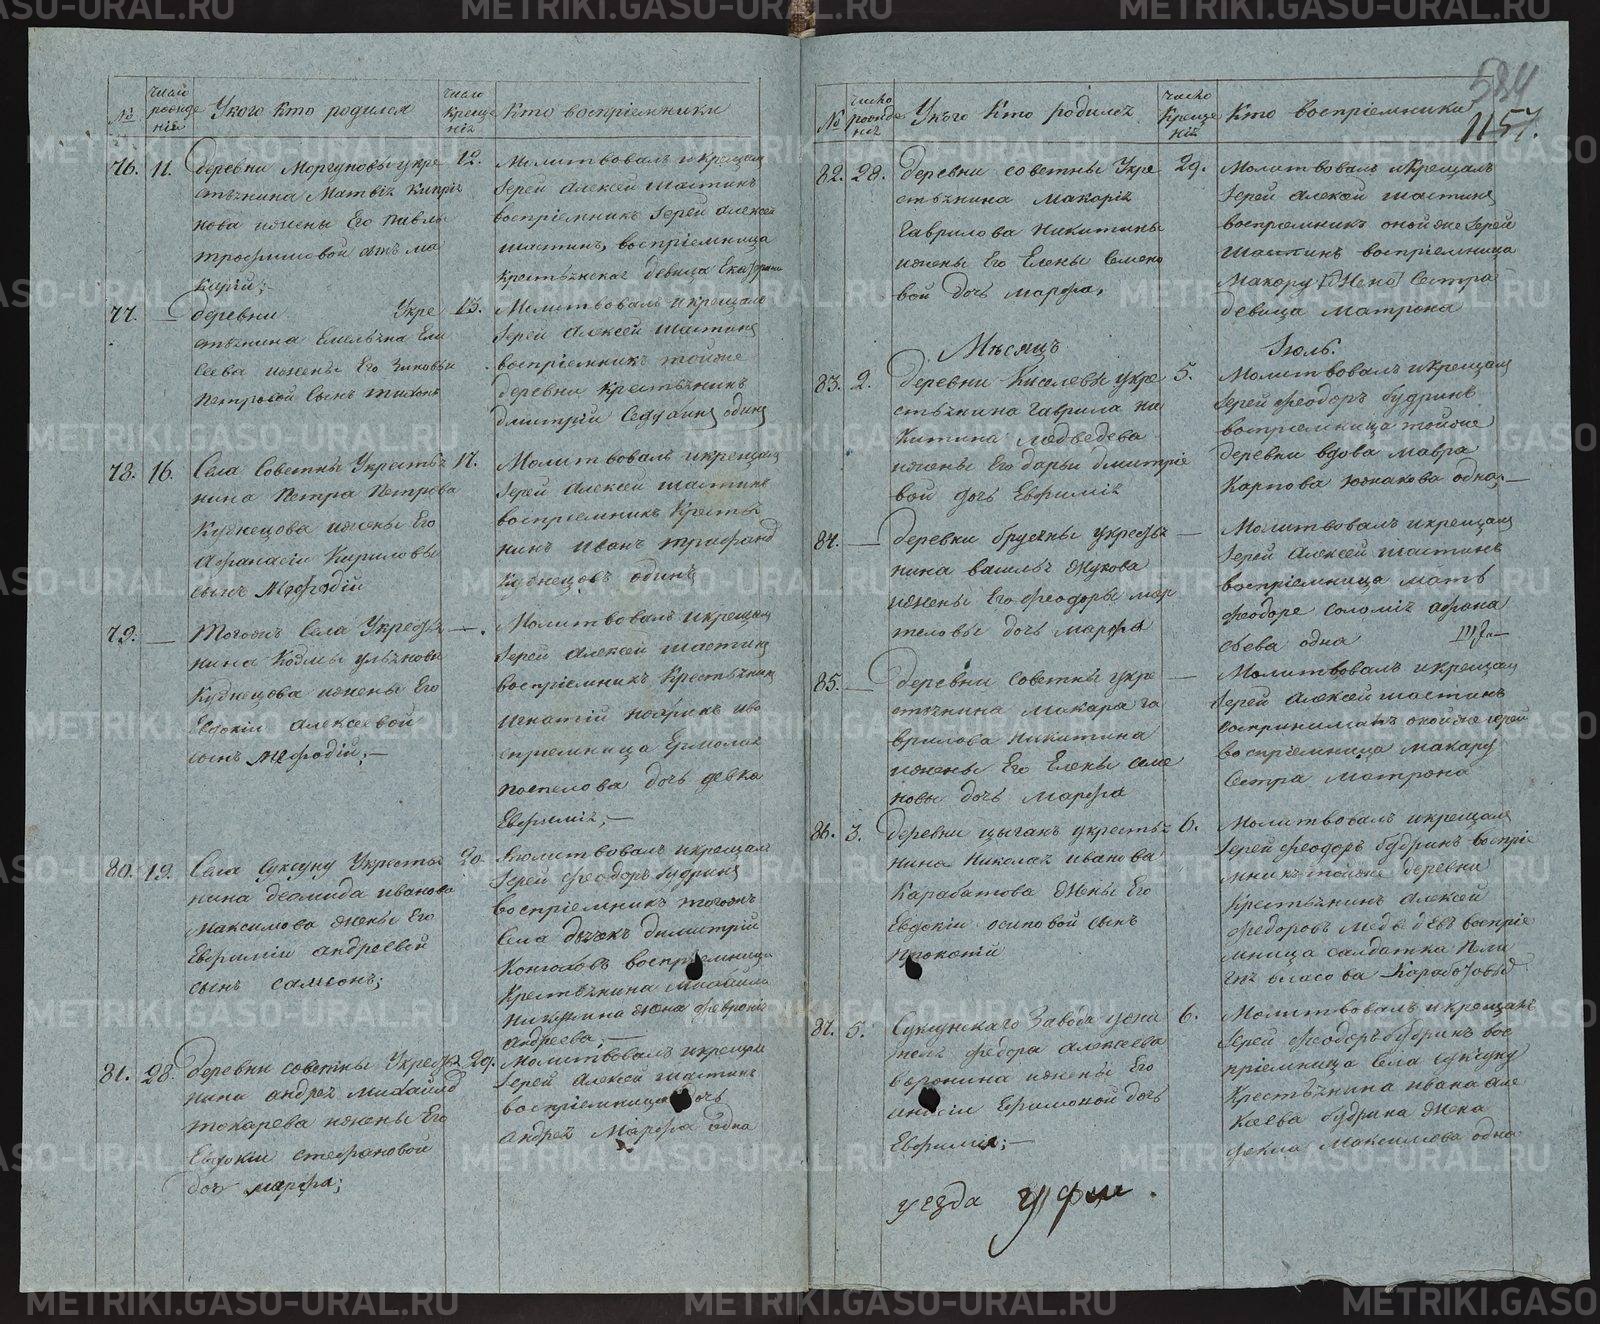 METRIKI.GASO-URAL.RU
584
1157.
№ число рожденія У кого кто родился число крещенія Кто воспріемники
76. 11. деревни Моргуновы укре
стьянина Матвія Кипрія
нова жены его Павлы
Трофимовой сынъ Ма
карій;-
12. Молитвовалъ и крещалъ
Іерей Алексей Шастинъ
воспріемникъ Іерей Алексей
Шастинъ, воспріемница
крестьянская девица Екатерина
77. — деревни укре
стьянина Емельяна Ели
сеева жены его Зиновьи
Петровой сынъ Тихонъ
13. Молитвовалъ и крещалъ
Іерей Алексей Шастинъ
воспріемникъ тойже
деревни крестьянинъ
Дмитрій одинъ
78. 16. Села Советны Укрестья
нина Петра Петрова
Кузнецова жены Его
Афанасіи Кириловы
сынъ Мефодій
17. Молитвовалъ и крещалъ
Іерей Алексей Шастинъ
воспріемникъ Кресть
нинъ Иванъ
Кузнецовъ одинъ
79. — Тогожъ Села Укресть
нина Козмы Ульянова
Кузнецова жены Его
Евдокіи Алексеевой
сынъ Мефодій;-
—. Молитвовалъ и крещалъ
Іерей Алексей Шастинъ
воспріемникъ Крестьянинъ
Игнатій во
спріемница Ермолая
Поспелова дочь девка
Евфимія;-
80. 19. Села Суксуну Укрестья
нина Деомида Иванова
Максимова жены Его
Евфиміи Андреевой
сынъ Самсонъ;
20. Молитвовалъ и крещалъ
Іерей Феодоръ Будринъ
Воспріемникъ тогожъ
Села дьячекъ Димитрій
воспріемница
Крестьянина
Никитина жена Февронія
Андреева;-
81. 28. деревни советны Укресть
нина Андрея Михайлова
токарева жены Его
Евдокии Стефановой
дочь марфа;
29. Молитвовалъ и крещалъ
Іерей Алексей Шастинъ
воспріемница дочь
Андрея Марфа одна
№ число рожденія У кого кто родился число крещенія Кто воспріемники
82. 28. деревни советны Укре
стьянина Макарія
Гаврилова Никитины
жены Его Елены Семено
вой дочь марфа,
29. Молитвовалъ и крещалъ
Іерей Алексей Шастинъ
воспріемникъ онойже Іерей
Шастинъ воспріемница
Макару Сестра
девица Матрона
Месяцъ Іюль.
83. 2. деревни Киселевы укре
стьянина Гаврила Ни
китина Медведева
жены Его дарьи дмитріе
вой дочь Евфимія
5. Молитвовалъ и крещалъ
Іерей Феодоръ Будринъ
воспріемница тойже
деревни вдова Мавра
Карпова Южакова одна;-
84. — деревни Брусяны укресть
нина Василья Жукова
жены Его Феодоры Мар
теловы дочь марфа
— Молитвовалъ и крещалъ
Іерей Алексей Шастинъ
воспріемница мать
Феодоре Соломія Афона
сьева одна
85. — деревни советны укре
стьянина Макара га
врилова Никитина
жены Его Елены семе
новы дочь Марфа
— Молитвовалъ и крещалъ
Іерей Алексей Шастинъ
онойже іерей
воспріемница Макару
Сестра Матрона
86. 3. деревни цыганъ укресть
нина Николая иванова
Карабатова жены Его
Евдокіи осиповой сынъ
Прокопій
6. Молитвовалъ и крещалъ
Іерей Феодоръ Будринъ воспріе
мникъ тойже деревни
Крестьянинъ Алексей
Федоровъ Медведевъ воспріе
мница салдатка Пела
гея власова Карабатова
87. 5. Суксунскаго Завода
Федора Алексеева
Воронина жены Его
анисіи Ефимовой дочь
Евфимия;-
6. Молитвовалъ и крещалъ
Іерей Феодоръ Будринъ вос
пріемница Села Суксуну
Крестьянина ивана Але
ксеева будрина жена
Фекла Максимова одна
уезда Уфим.